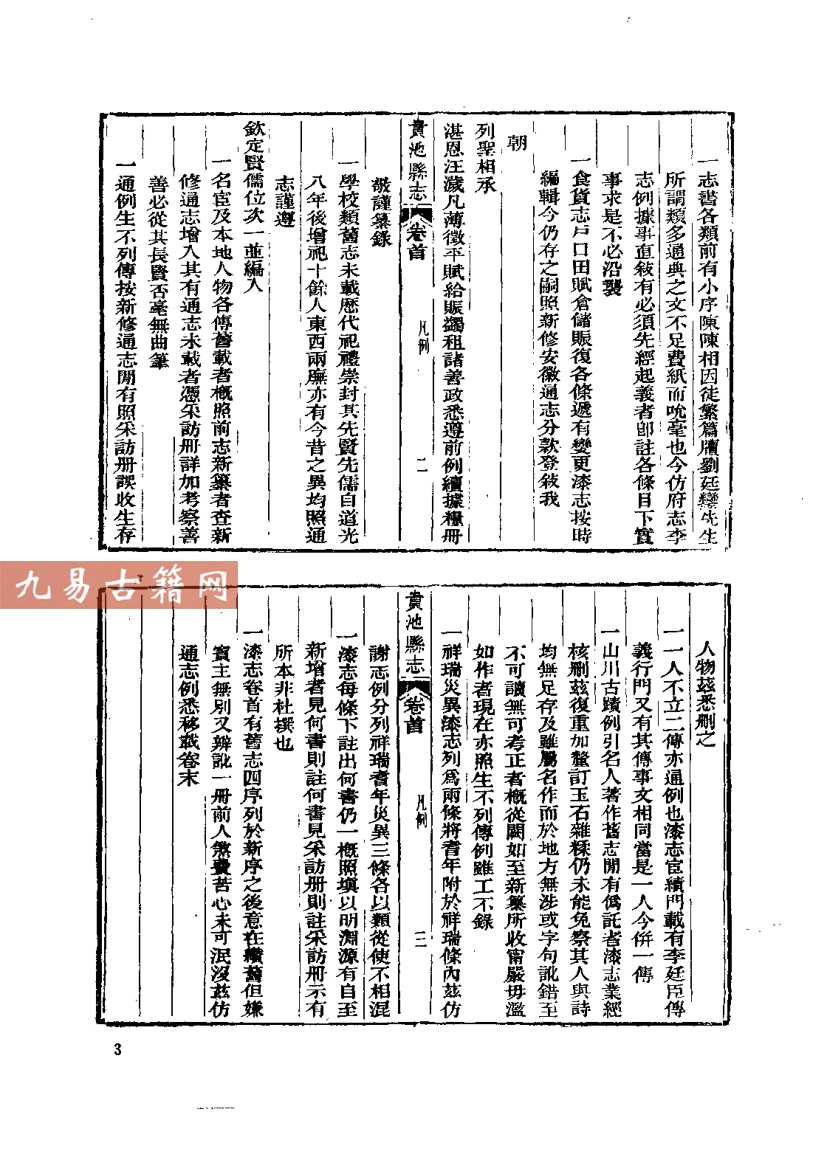 一志書各類前有小序陳陳相因徒繁篇牘劉廷鑾先生
所謂類多通典之文不足費紙而吮毫也今仿府志李
志例據事直敍有必須先經起義者卽註各條目下實
事求是不必沿襲
一食貨志戶口田賦倉儲賑復各條遞有變更漆志按時
編輯今仍存之嗣照新修安徽通志分款登敍我
朝
列聖相承
湛恩汪濊凡薄徵平賦給賑蠲租諸善政悉遵前例續據糧冊
貴池縣志
卷首
凡例
二
敬謹纂錄
一學校類舊志未載歷代祀禮崇封其先賢先儒自道光
八年後增祀十餘人東西兩廡亦有今昔之異均照通
志謹遵
欽定賢儒位次一並編入
一名宦及本地人物各傳舊載者槪照前志新纂者查新
修通志增入其有通志未載者憑采訪冊詳加考察善
善必從其長賢否毫無曲筆
一通例生不列傳按新修通志閒有照采訪冊誤收生存
人物茲悉刪之
一一人不立二傳亦通例也漆志宦績門載有李廷臣傳
義行門又有其傳事文相同當是一人今併一傳
一山川古蹟例引名人著作舊志閒有僞託者漆志業經
核刪茲復重加釐訂玉石雜糅仍未能免察其人與詩
均無足存及雖屬名作而於地方無涉或字句訛錯至
不可讀無可考正者槪從闕如至新纂所收甯嚴毋濫
如作者現在亦照生不列傳例雖工不錄
一祥瑞災異漆志列爲兩條將耆年附於祥瑞條內茲仿
貴池縣志
卷首
凡例
三
謝志例分列祥瑞耆年災異三條各以類從使不相混
一漆志每條下註出何書仍一槪照塡以明淵源有自至
新增者見何書則註何書見采訪冊則註采訪冊示有
所本非杜撰也
一漆志卷首有舊志四序列於新序之後意在纘舊但嫌
賓主無別又辨訛一冊前人煞費苦心未可泯沒茲仿
通志例悉移載卷末
九易古籍网
3